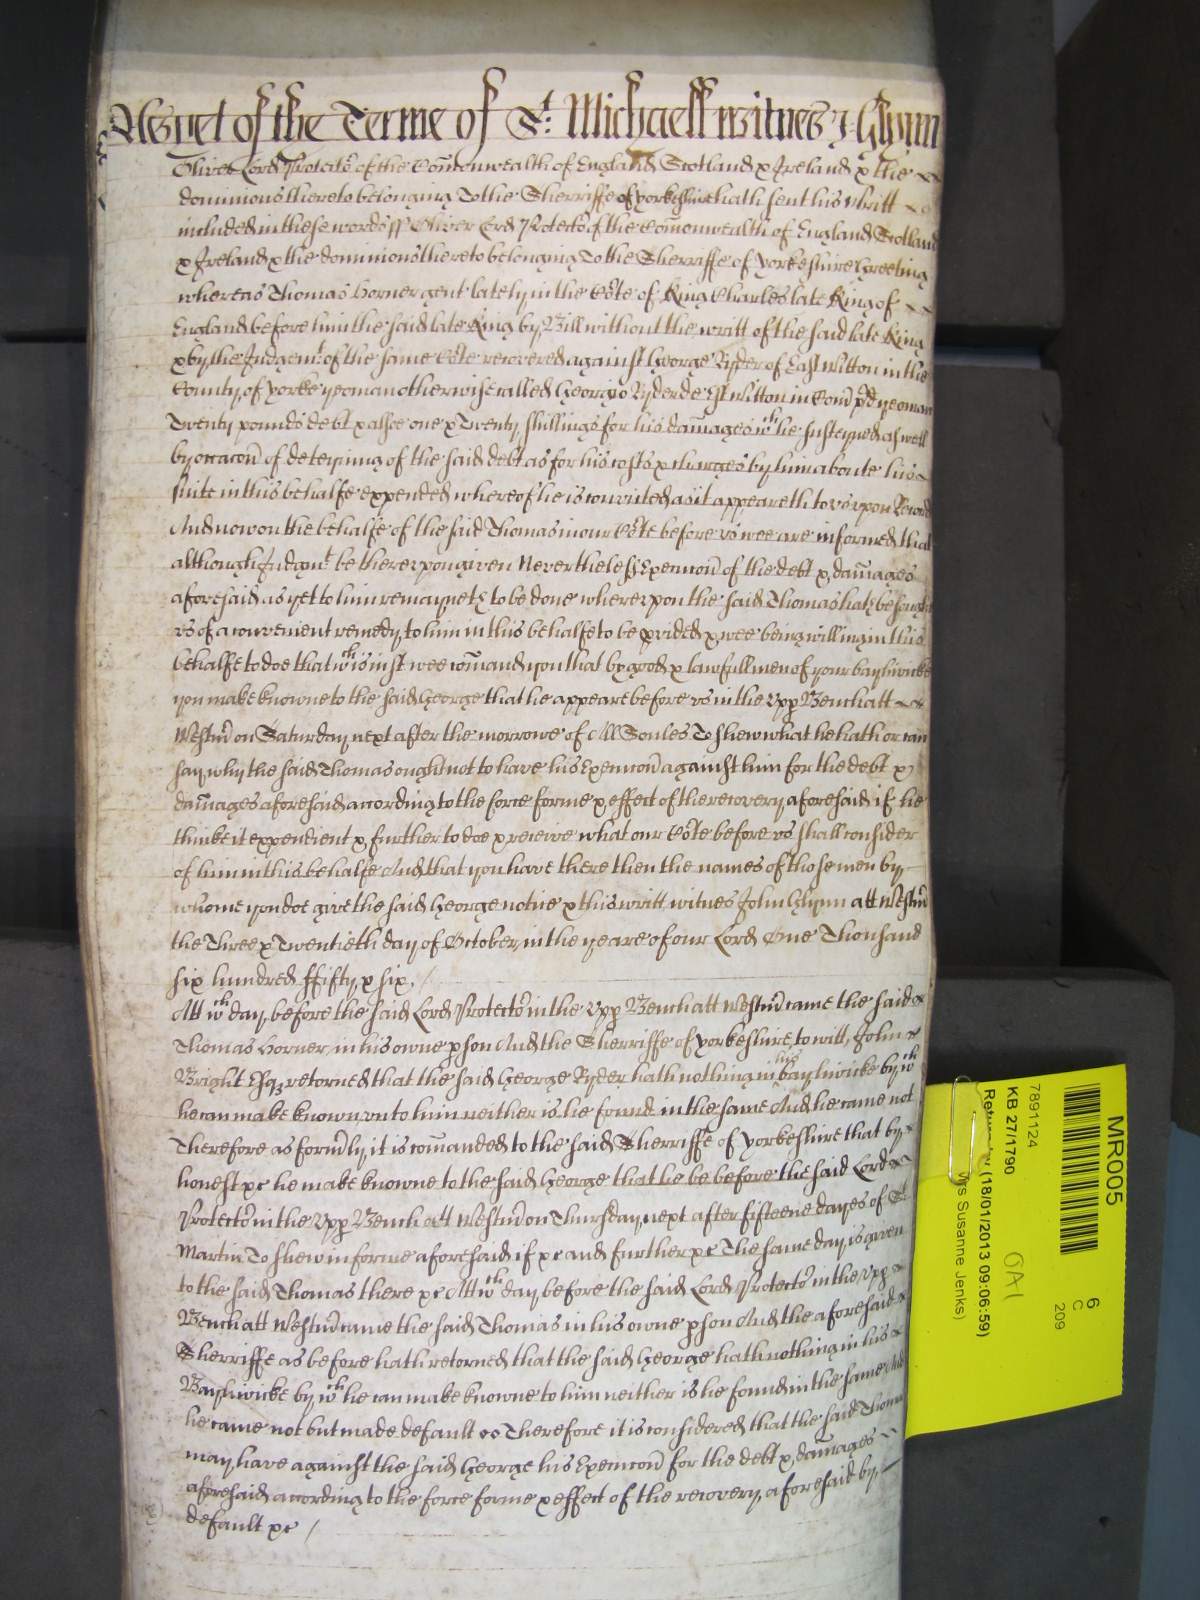 As yet of the Terme of St. Michaell witnes J: Glynn
Oliver Lord Protector of the Com̄onwealth of England Scotland & Ireland & the
dominions thereto belonging To the Sherriffe of yorkeshire hath sent his writt
included in these words ss Oliver Lord Protector of the Com̄onwealth of England Scotland
& Ireland & the dominions thereto belonging To the Sherriffe of yorkeshire Greeting
whereas Thomas Horner gent lately in the Cōte of King Charles late King of
England before him the said late King by Bill without the writt of the said late King
& by the Judgemt of the same Cōte recovered against George Ryder of East Witton in the
County of yorke yeoman otherwise called George Ryder de Est Witton in Com̄ pd yeoman
Twenty pounds debt & alsoe one & Twenty shillings for his dam̄ages wch he susteyned as well
by occac̄on of deteyning of the said debt as for his costs & charges by him aboute his
suite in this behalfe expended whereof he is convicted as it appeareth to vs vpon Record
And now on the behalfe of the said Thomas in our Cōte before vs wee are informed that
although Judgmt be therevpon given Neverthelesse Execuc̄on of the debt & dam̄ages
aforesaid as yet to him remayneth to be done wherevpon the said Thomas hath besought
vs of a convenient remedy to him in this behalfe to be p̱vided & wee being willing in this
behalfe to doe that wch is iust wee com̄and you that by good & lawfull men of your bayliwicke
you make knowne to the said George that he appeare before vs in the Vpp̱ Bench att
Westm̄ on Saturday next after the morrowe of All Soules To shew what he hath or can
say why the said Thomas ought not to have his Execuc̄on against him for the debt &
dam̄ages aforesaid according to the force forme & effect of the recovery aforesaid if he
thinke it expendient & further to doe & receive what our Cōte before vs shall consider
of him in this behalfe And that you have there then the names of those men by
whome you doe give the said George notice & this writt witnes John Glynn att Westm̄
the Three & Twentieth day of October in the yeare of our Lord One Thousand
six hundred ffifty & six /
Att wch day before the said Lord Protector in the Vpp̱ Bench att Westm̄ came the said
Thomas Horner in his owne p̱son And the Sherriffe of yorkeshire to witt, John
Bright Esqz retorned that the said George Ryder hath nothing in his bayliwicke by wch
he can make known vnto him neither is he found in the same And he came not
Therefore as form̄ly it is com̄anded to the said Sherriffe of yorkeshire that by
honest &c he make knowne to the said George that he be before the said Lord
Protector in the Vpp̱ Bench Att Westm̄ on Thursday next after fifteene dayes of St
Martin To shew in forme aforesaid if &c and further &c The same day is given
to the said Thomas there &c Att wch day before the said Lord Protector in the Vpp̱
Bench att Westm̄ came the said Thomas in his owne p̱son And the aforesaid
Sherriffe as before hath retorned that the said George hath nothing in his
Bayliwicke by wch he can make knowne to him neither is he found in the same And
he came not but made default Therefore it is considered that the said Thomas
may have against the said George his Execuc̄on for the debt & dam̄ages
aforesaid according to the force forme & effect of the recovery aforesaid by
default &c /
MR005
6
C
209
7891124
KB 27/1790
(18/01/2013 09:06:59)
Mrs Susanne Jenks)